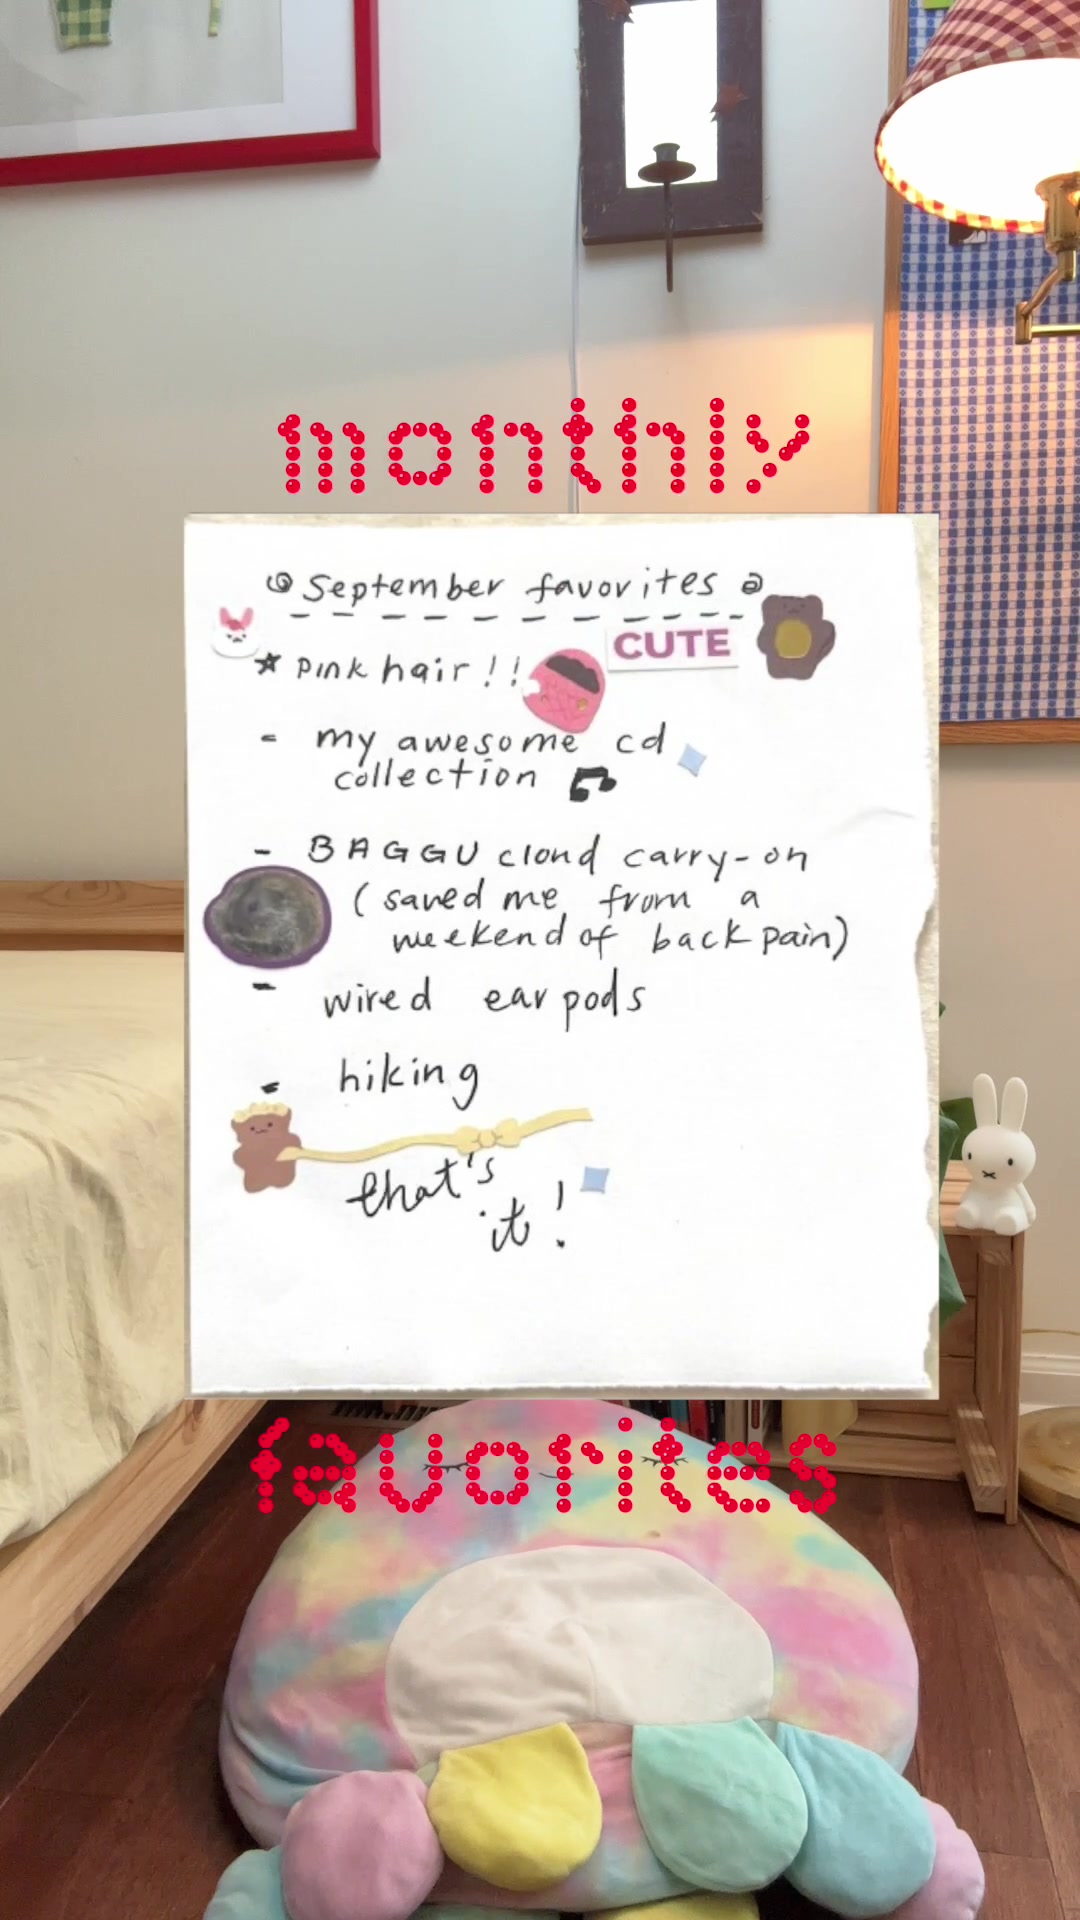 monthly
September favorites
CUTE
pink hair!!
- my awesome cd
collection
- BAGGU cloud carry-on
(saved me from a
weekend of back pain)
- wired earpods
- hiking
that's
it!
favorites